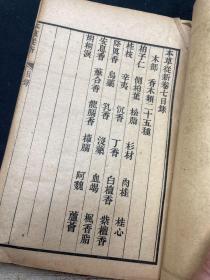 本草從新卷七目錄
木部 香木類二十五種
柏子仁 側柏葉 松脂 杉材 肉桂 桂心
桂枝 辛夷 沉香 丁香 白檀香 紫檀香
降真香 烏藥 乳香 沒藥 血竭 楓香脂
安息香 蘇合香 龍腦香 樟腦 阿魏 蘆薈
胡桐淚